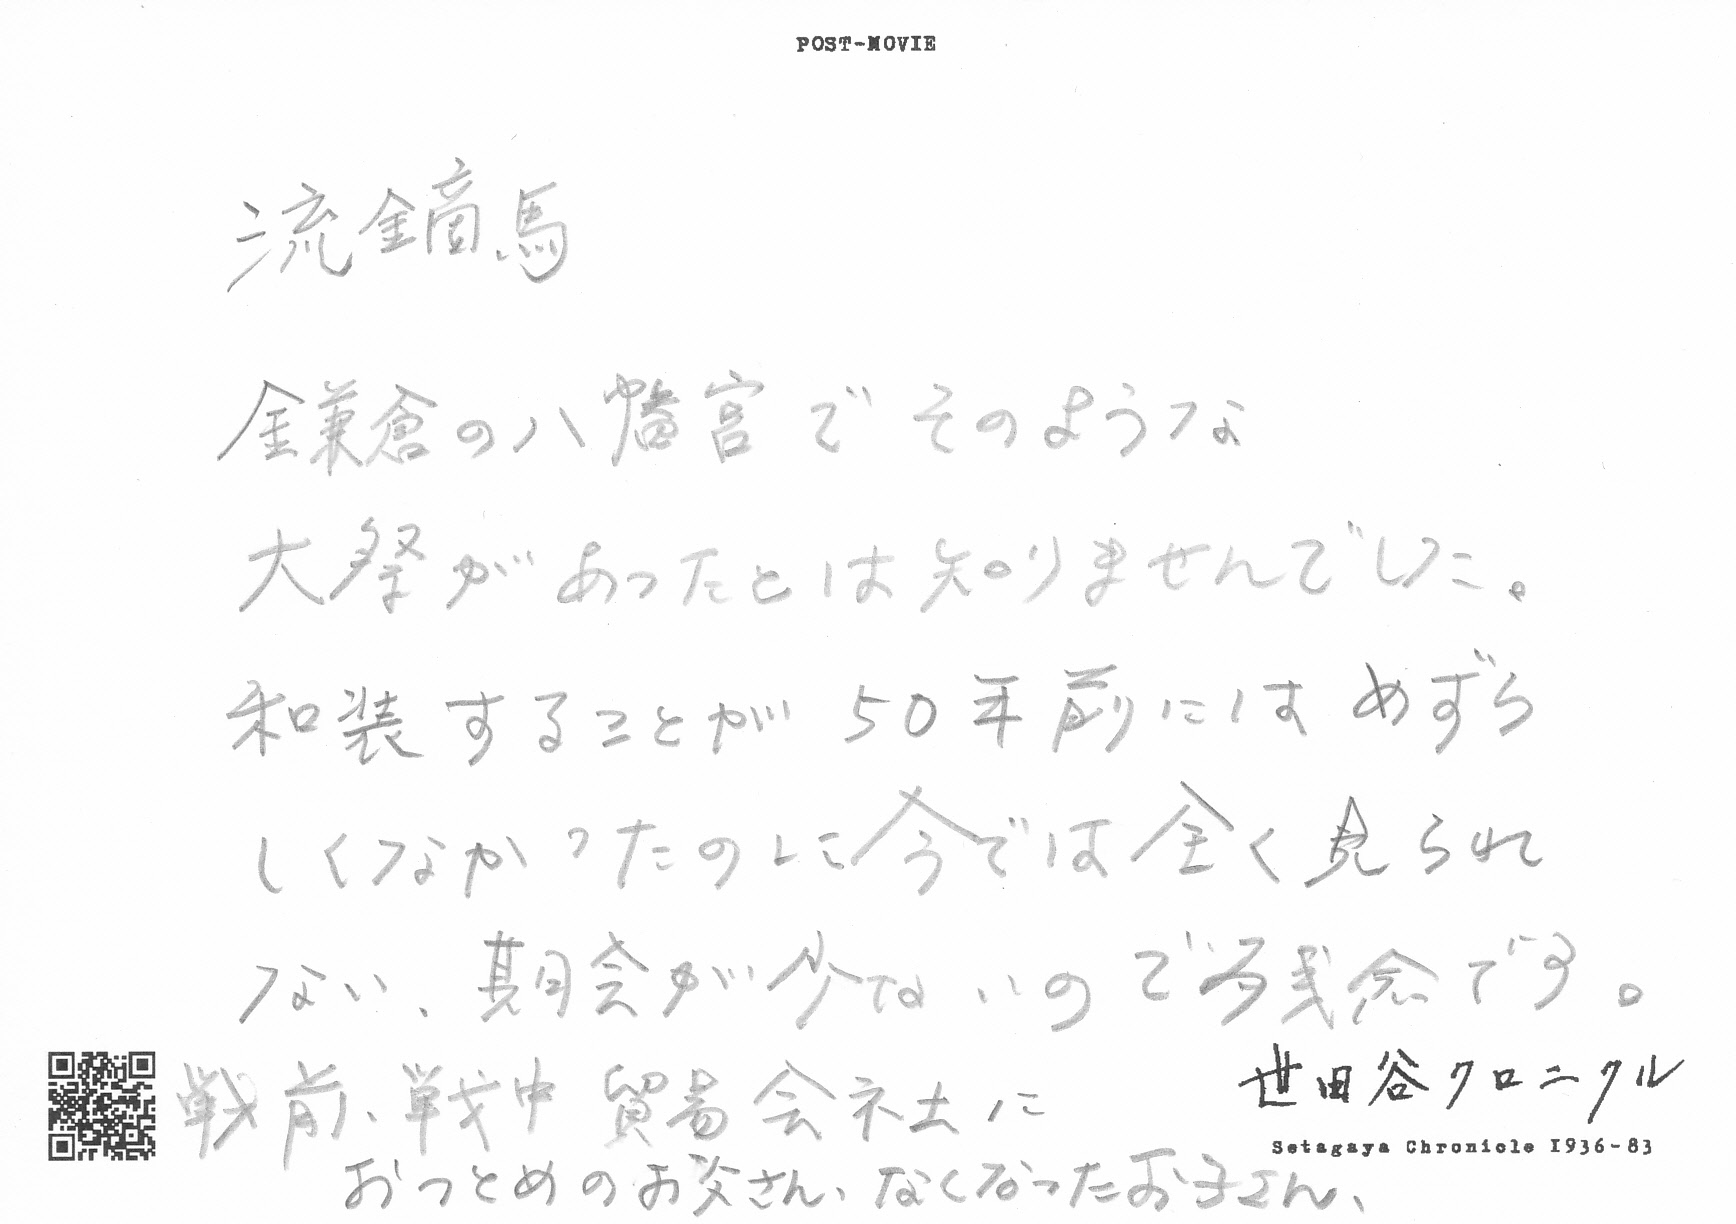 POST-MOVIE
流鏑馬
鎌倉の八幡宮でそのような
大祭があったとは知りませんでした。
和装することが50年前にはめずら
しくなかったのに今では全く見られ
ない、期会が少ないのでざ残念です。
戦前、戦中 貿易会社に
おつとめのお父さん、なくなったお子さん、
世田谷クロニクル
Setagaya Chronicle 1936-83